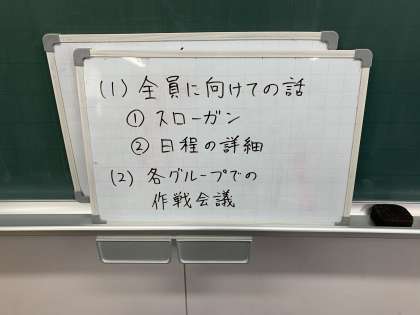 (1) 全員に向けての話
① スローガン
② 日程の詳細
(2) 各グループでの
作戦会議